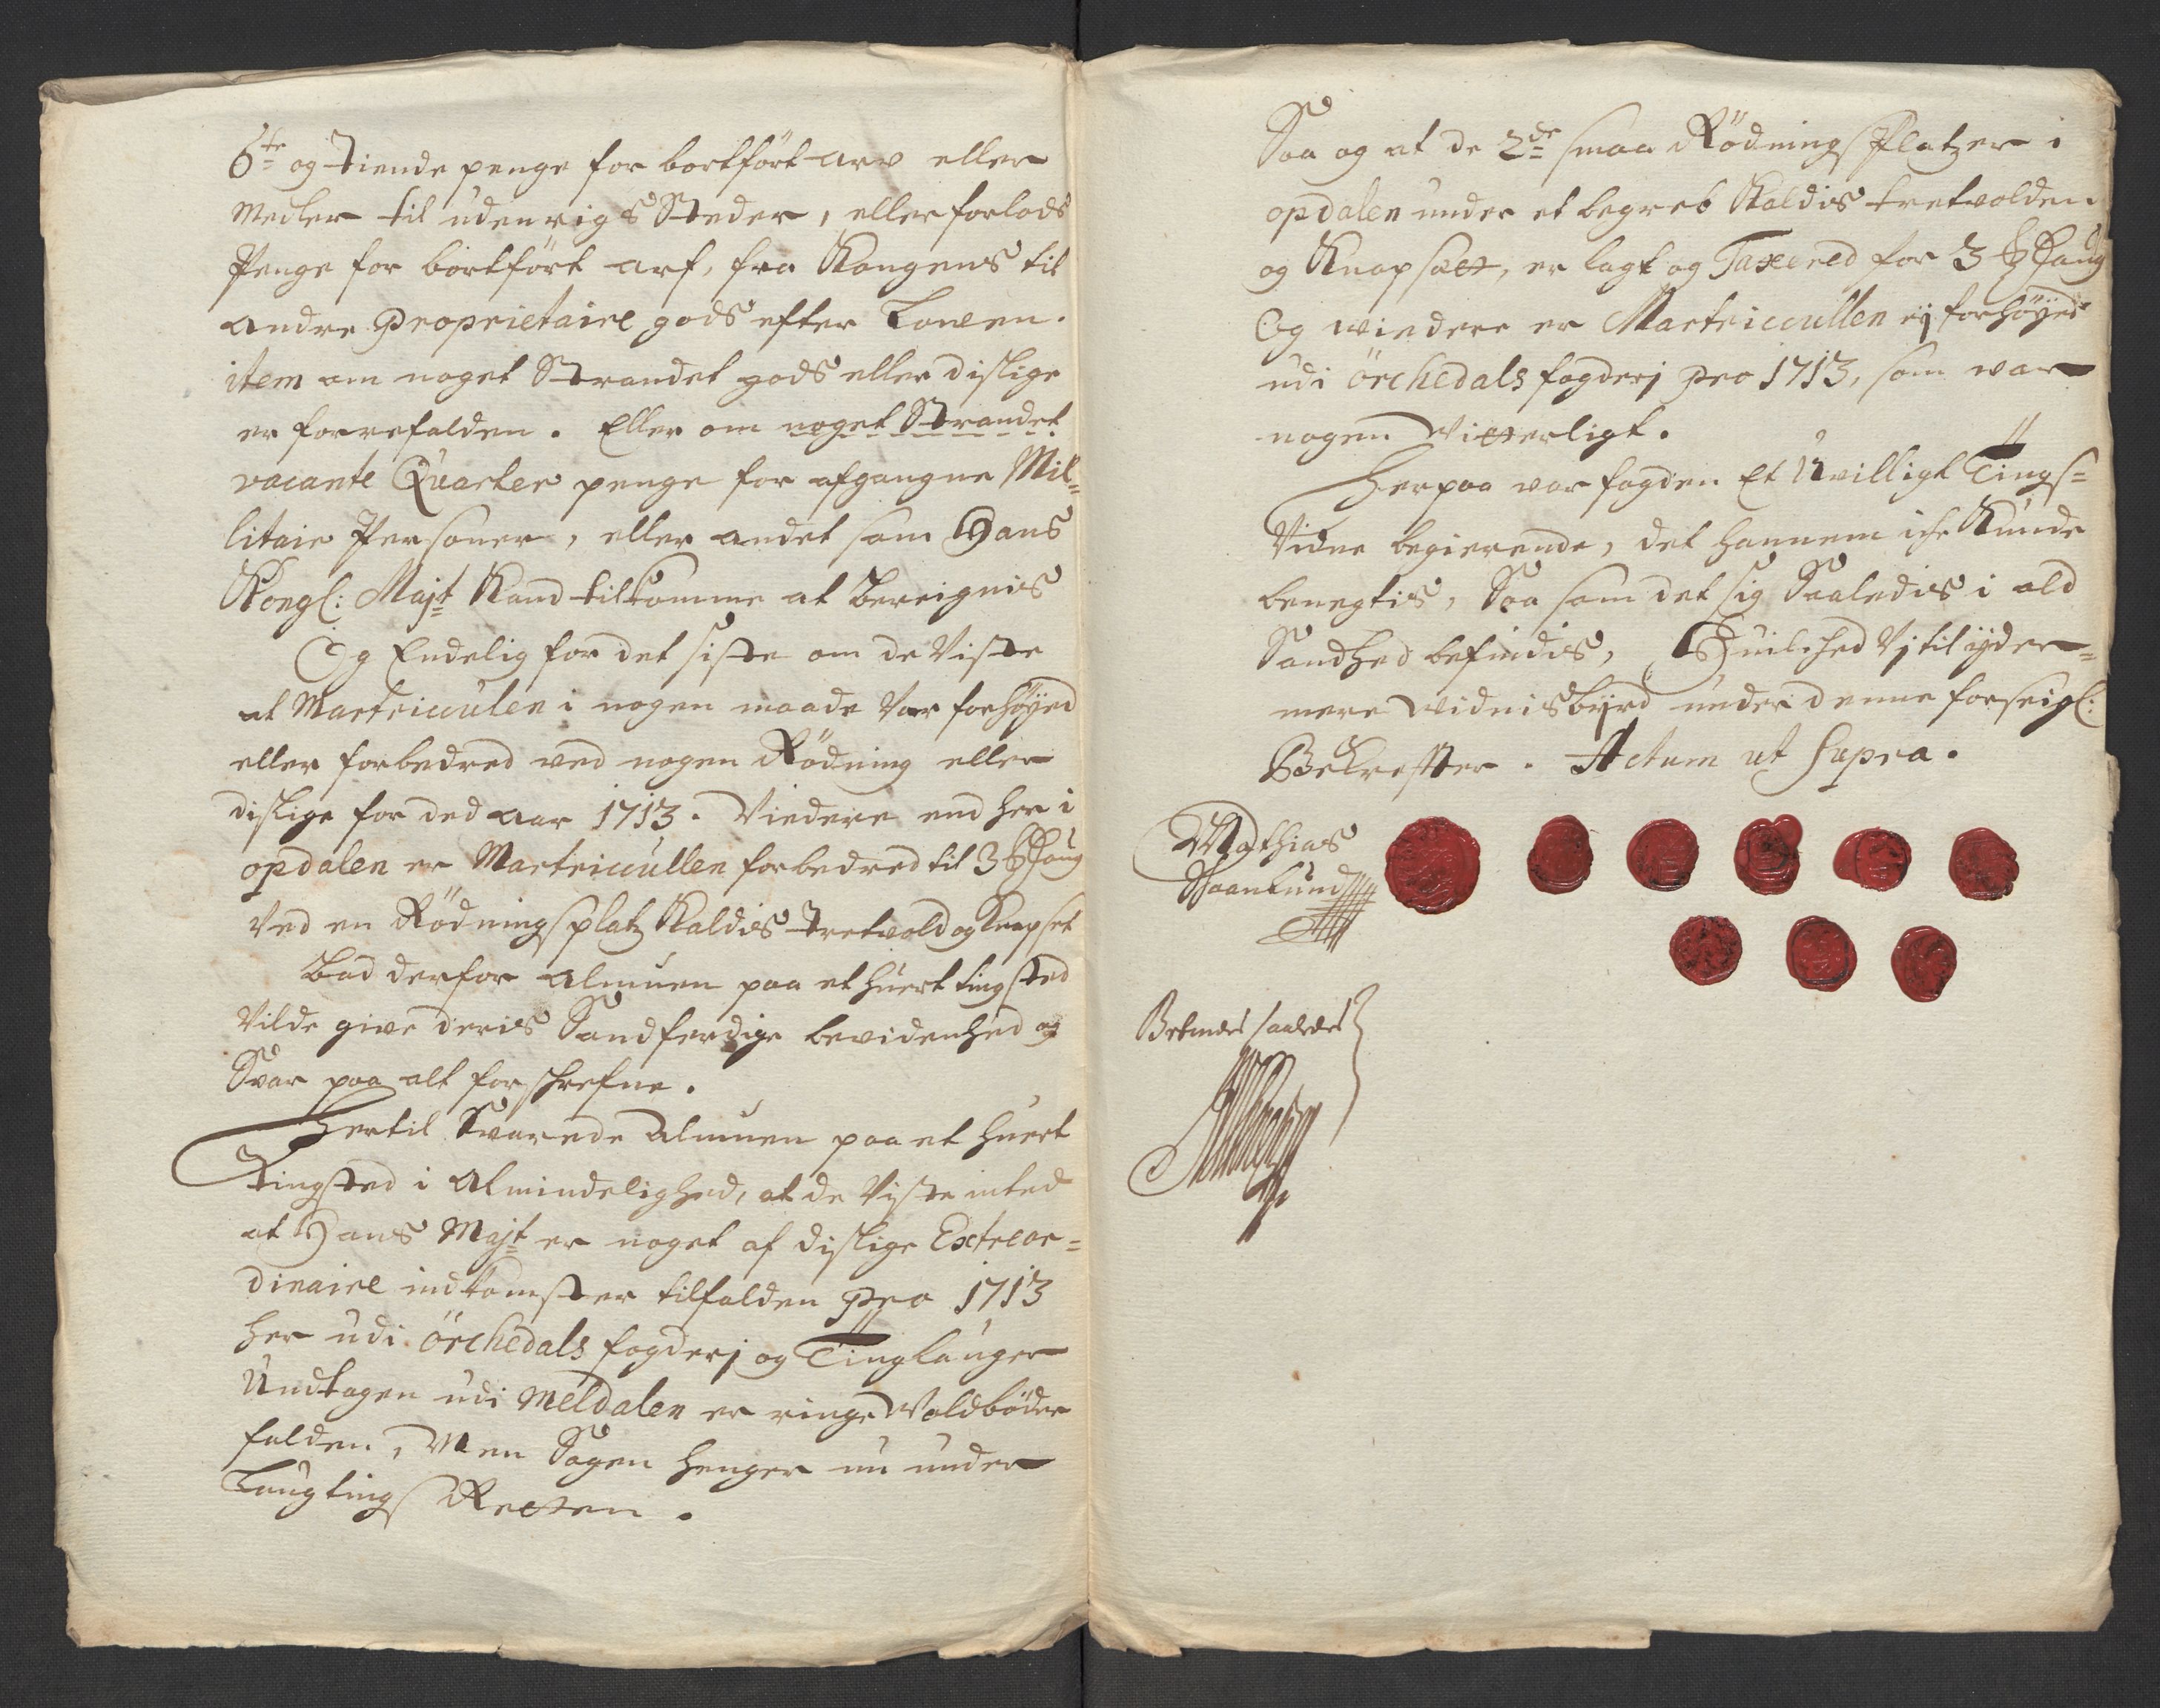 6te og Tiende penge for bortført arv eller
Medler til udenrigs Steder, eller forlods
Penge for bortført arf, fra Kongens til
andre Proprietaire gods efter Lowen.
item om noget Strandet gods eller dislige
er forrefalden. Eller om noget Strandet
vacante Quarteer penge for afgangne Mil=
litair Personer, eller andet som Hans
Kongl: Majt Kand tilkomme at Bereignis
Og Endelig for det siste om de Viste
at Martriculen i nogen maade Var forhøyed
eller forbedred ved nogen Rødning eller
dislige for ded aar 1713. Viedere end her i
opdalen er Martriccullen forbedred til 3
Ved en Rødningsplatz Kaldis Tretvold og Knapset
Bad derfor Almuen paa et huert tingsted
Vilde give deris Sandferdige bevidenhed og
Svar paa alt forschrefne.
Hertil Svarede Almuen paa et huert
Tingsted i Almindelighed, at de Vyste inted
at Hans Majt er noget af dislige Extreor=
dinaire indkomster tilfalden pro 1713
her udi örchedals fogderj og Tinglauger
Undtagen udi Meldalen er ringe Voldbøder
falden, Men Sagen henger nu under
Laugtings Retten.
Saa og at de 2de smaa Rødnings Platzer i
opdalen under et begreb Kaldis tretvolden
og Knapsæt, er lagt og Taxered for 3
Og wiedere er Martriccullen ej forhøyed
udi örchedals fogderj pro 1713, som war
nogen Vitterligt.
Herpaa var fogden Et Uvilligt Tings=
Vidne begierende, det hannem iche Kunde
benegtis, Saa som det sig Saaledis i ald
Sandhed befindis, Huilched Vj til yder=
mere Vidnisbyrd under denne forseigl:
Bekreffter. Actum ut supra.
Mathias
Schaanlund
Befindes saaledes